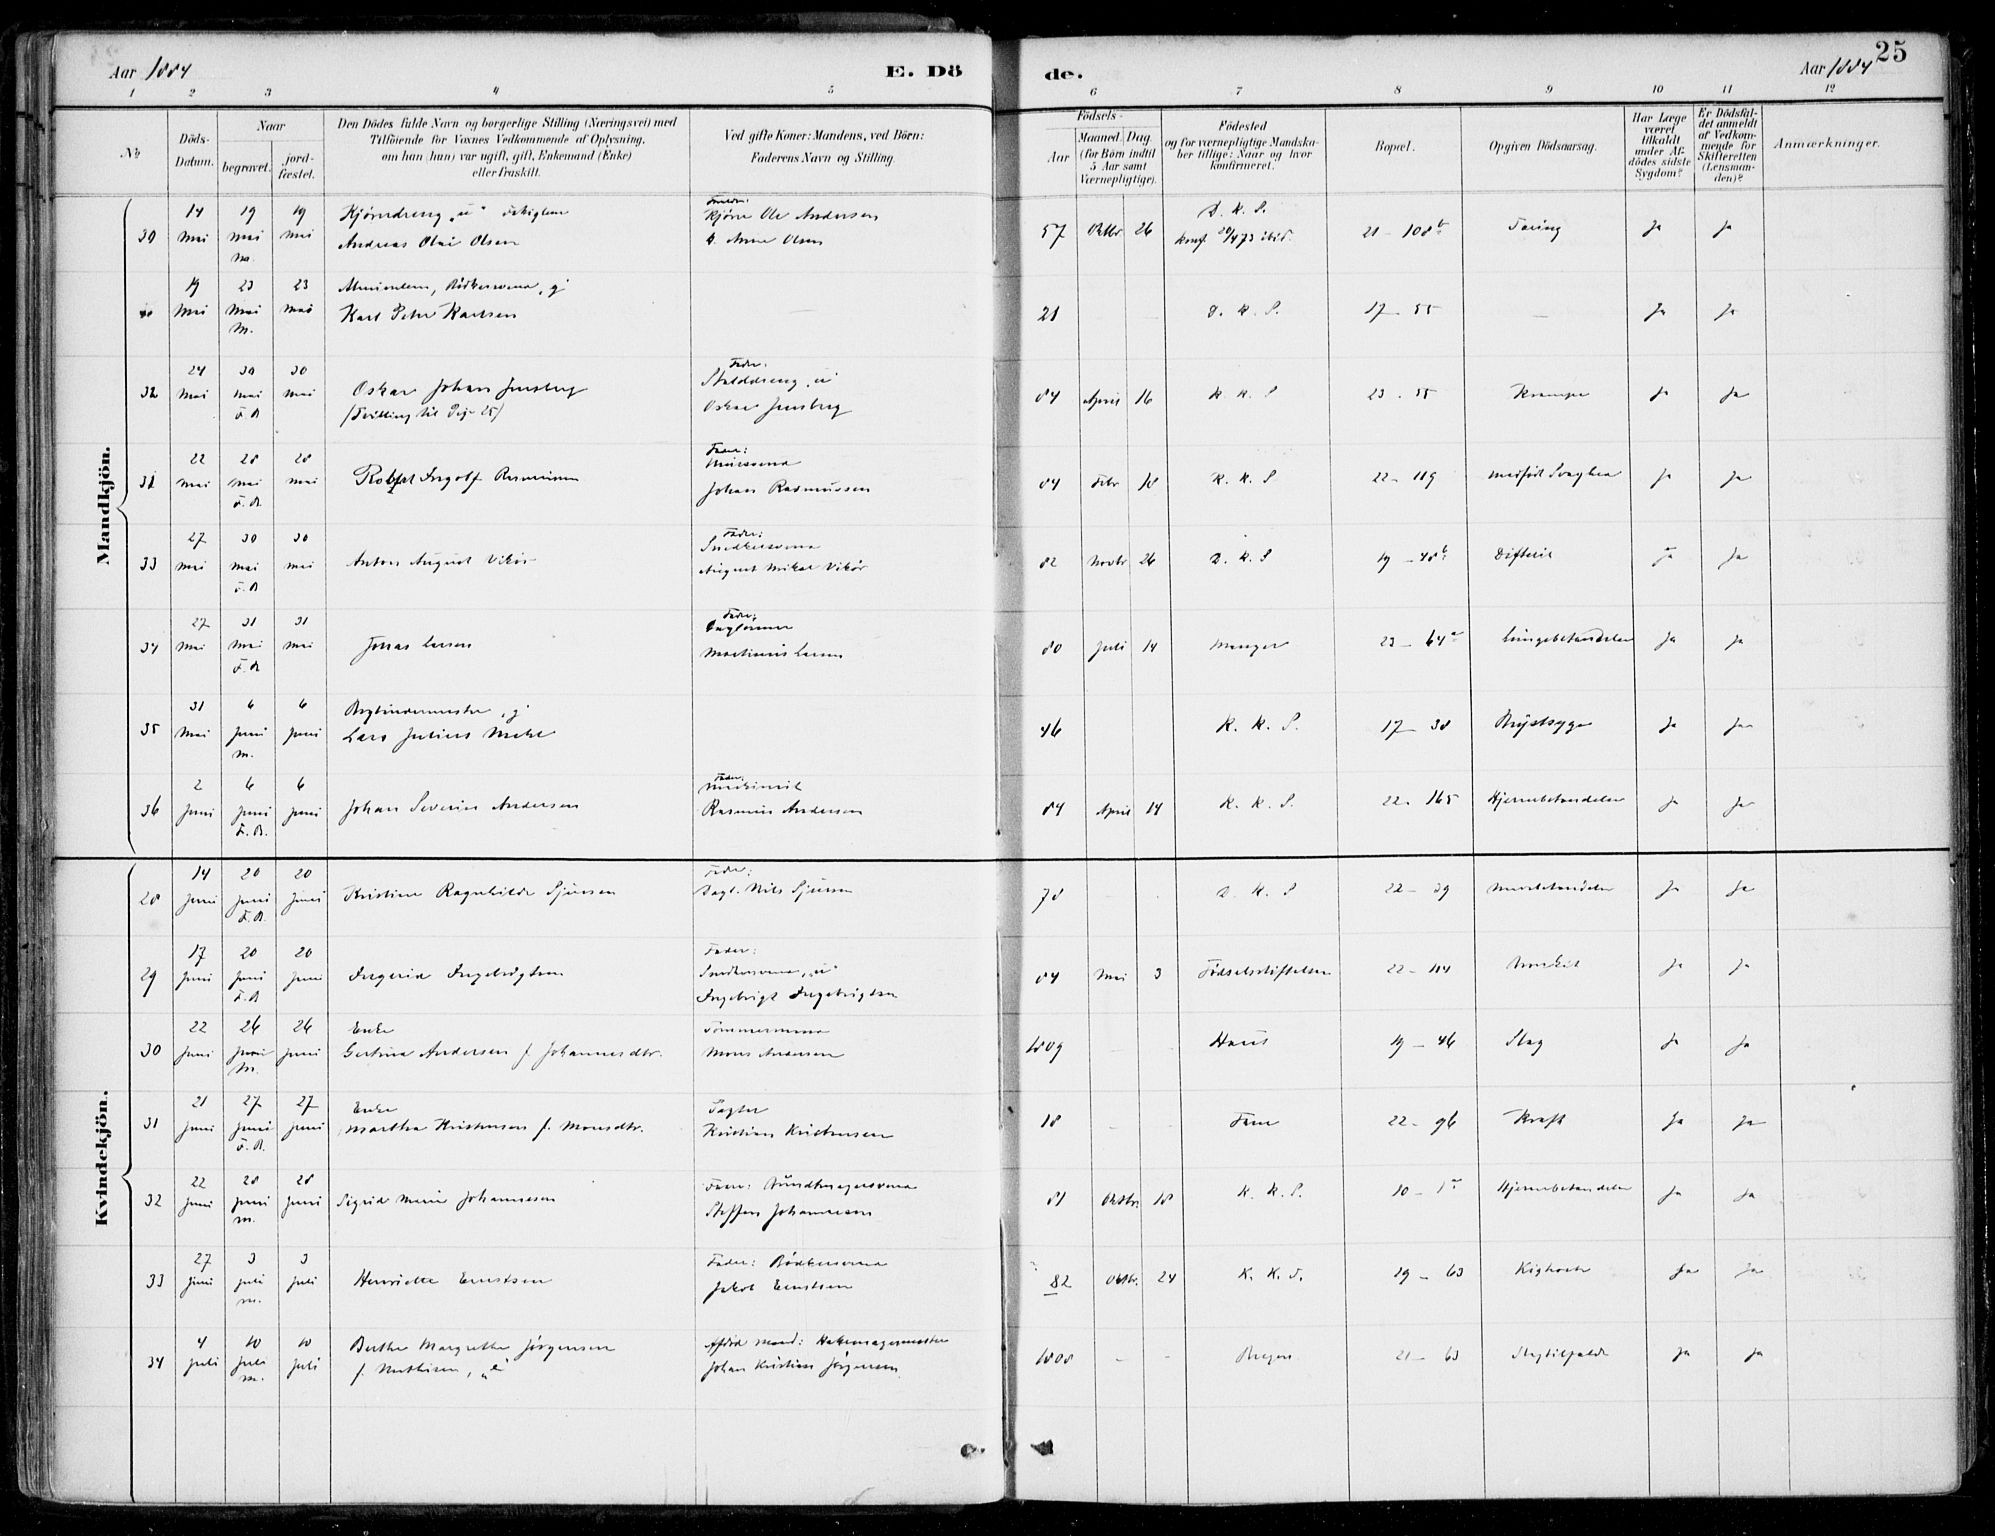 Aar 1884
E. Dö
de.
Aar 1884
25
1 2 3 4 5 6 7 8 9 10 11 12
No
Döds-
Datum.
Naar
begravet.
jord-
fæstet.
Den Dödes fulde Navn og borgerlige Stilling (Næringsvei) med
Tilföiende for Voxnes Vedkommende af Oplysning,
om han (hun) var ugift, gift, Enkemand (Enke)
eller fraskilt.
Ved gifte Koner: Mandens, ved Börn:
Faderens Navn og Stilling.
Födsels-
Aar
Maaned Dag
(for Börn indtil
5 Aar samt
Værnepligtige).
Födested
og for værnepligtige Mandska-
ber tillige: Naar og hvor
konfirmeret.
Bopæl.
Opgiven Dödsaarsag.
Har Læge
været
tilkaldt
under Af-
dödes sidste
Sygdom?
Er Dödsfal-
det anmeldt
af Vedkom-
mende for
Skifteretten
(Lensman-
den)?
Anmærkninger.
Mandkjön.
14 Mai 19 Mai 19 Mai
Andreas Olai Olsen
Ole Andersen
57 Oktbr 26 D. K. S. 21 - 108 b Tæring Ja Ja
19 Mai 23 Mai M. 23 Mai
Karl Peter Karlsen
21 D. K. S. 17 - 55 Ja Ja
32 24 Mai 30 Mai F.B. 30 Mai
Oskar Johan Jensberg
(Tvilling til Pige 25)
Fader:
Oskar Jensberg
84 April 16 K. K. S 23 - 55 Krampe Ja Ja
31 22 Mai 28 Mai F.B. 28 Mai
Robert Ingolf Rasmussen
Fader:
Johan Rasmussen
84 Febr 18 K. K. S 22 - 119 medfødt Svaghed Ja Ja
33 27 Mai 30 Mai F.B. 30 Mai
Anton August Vikør
Fader:
Snedkersvend
August Mikal Vikør
82 Novbr 26 D. K. S 19 - 48 b Difterit Ja Ja
34 27 Mai 31 Mai F.B. 31 Mai
Jonas Larsen
Fader:
Martinus Larsen
80 Juli 14 Manger 23 - 64 a Lungebetændelse Ja Ja
35 31 Mai 6 Juni M. 6 Juni
Lars Julius
46 K. K. S. 17 - 38 Brystsyge Ja Ja
36 2 Juni 6 Juni F.B. 6 Juni
Johan Severin Andersen
Fader:
Rasmus Andersen
84 April 14 K. K. S. 22 - 165 Hjernebetændelse Ja Ja
Kvindekjön.
28 14 Juni 20 Juni F.B. 20 Juni
Kristine Ragnhilde Sjursen
Fader:
Dagl. Nils Sjursen
78 D. K. S 22 - 39 Ja Ja
29 17 Juni 20 Juni F.B. 20 Juni
Ingerid Ingebrigtsen
Fader:
Snedkersvend, "u"
Ingebrigt Ingebrigtsen
84 Mai 3 Fødselsstiftelsen 22 - 114 Bronkit Ja Ja
30 22 Juni 26 Juni M. 26 Juni
Enke
Gertina Andersen f. Johannesdtr.
Tømmermand
Mons Andersen
1809 Haus 19 - 46 Slag Ja Ja
31 21 Juni 27 Juni F.B. 27 Juni
Enke
Martha Kristensen f. Monsdtr.
Kristian Kristensen
18 Fane 22 - 96 Kræft Ja Ja
32 22 Juni 28 Juni M. 28 Juni
Sigrid Marie Johannesen
Fader: Buntmagersvend
Steffen Johannesen
81 Oktbr. 18 K. K. S. 10 - 1 a Hjernebetændelse Ja Ja
33 27 Juni 3 Juli M. 3 Juli
Henriette Erntsen
Fader: Bødkersvend
Jakob Erntsen
82 Oktbr. 24 K. K. S. 19 - 63 Kighoste Ja Ja
34 4 Juli 10 Juli M. 10 Juli
Berthe Margrethe Jørgensen
f. Mathisen, "e"
Afdød Mand:
Johan Kristian Jørgensen
1808 Bergen 21 - 63 Slagtilfælde Ja Ja